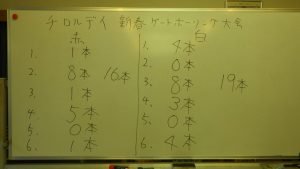 チロルデイ 新春ゲートボーリング大会
赤
1. 1本
2. 8本
3. 1本
4. 5本
5. 0本
6. 1本
16本
白
1. 4本
2. 0本
3. 8本
4. 3本
5. 0本
6. 4本
19本